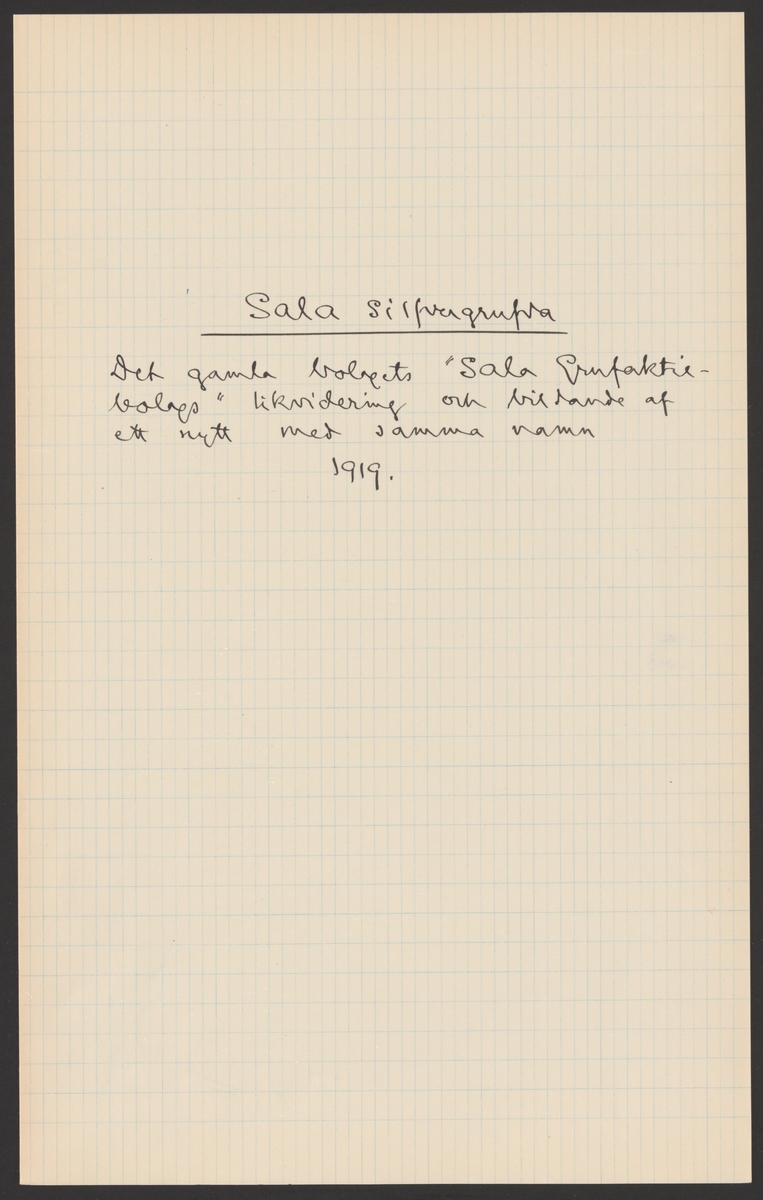 Sala Silfvergrufva
Det gamla bolagets "Sala Grufaktie-
bolags" likvidering och bildande af
ett nytt med samma namn
1919.